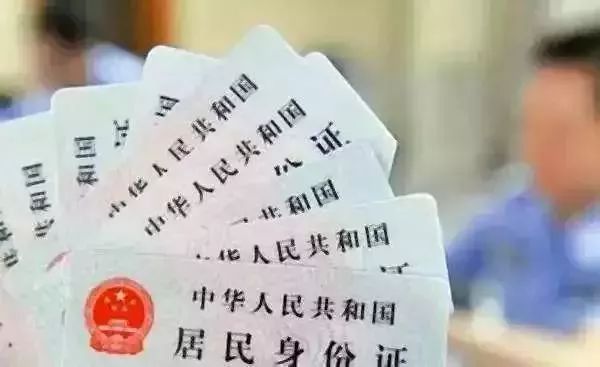 中华人民共和国
中华人民共和国
份证
共和国
人民共和国
中华人民共和国
居民身份证